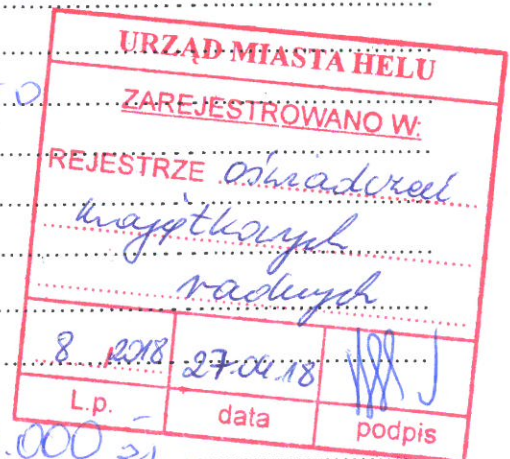 URZĄD MIASTA HELU
ZAREJESTROWANO W:
REJESTRZE oświadczeń
majątkowych
radnych
8 2018 27.04.18
L.p. data podpis
.000 zł